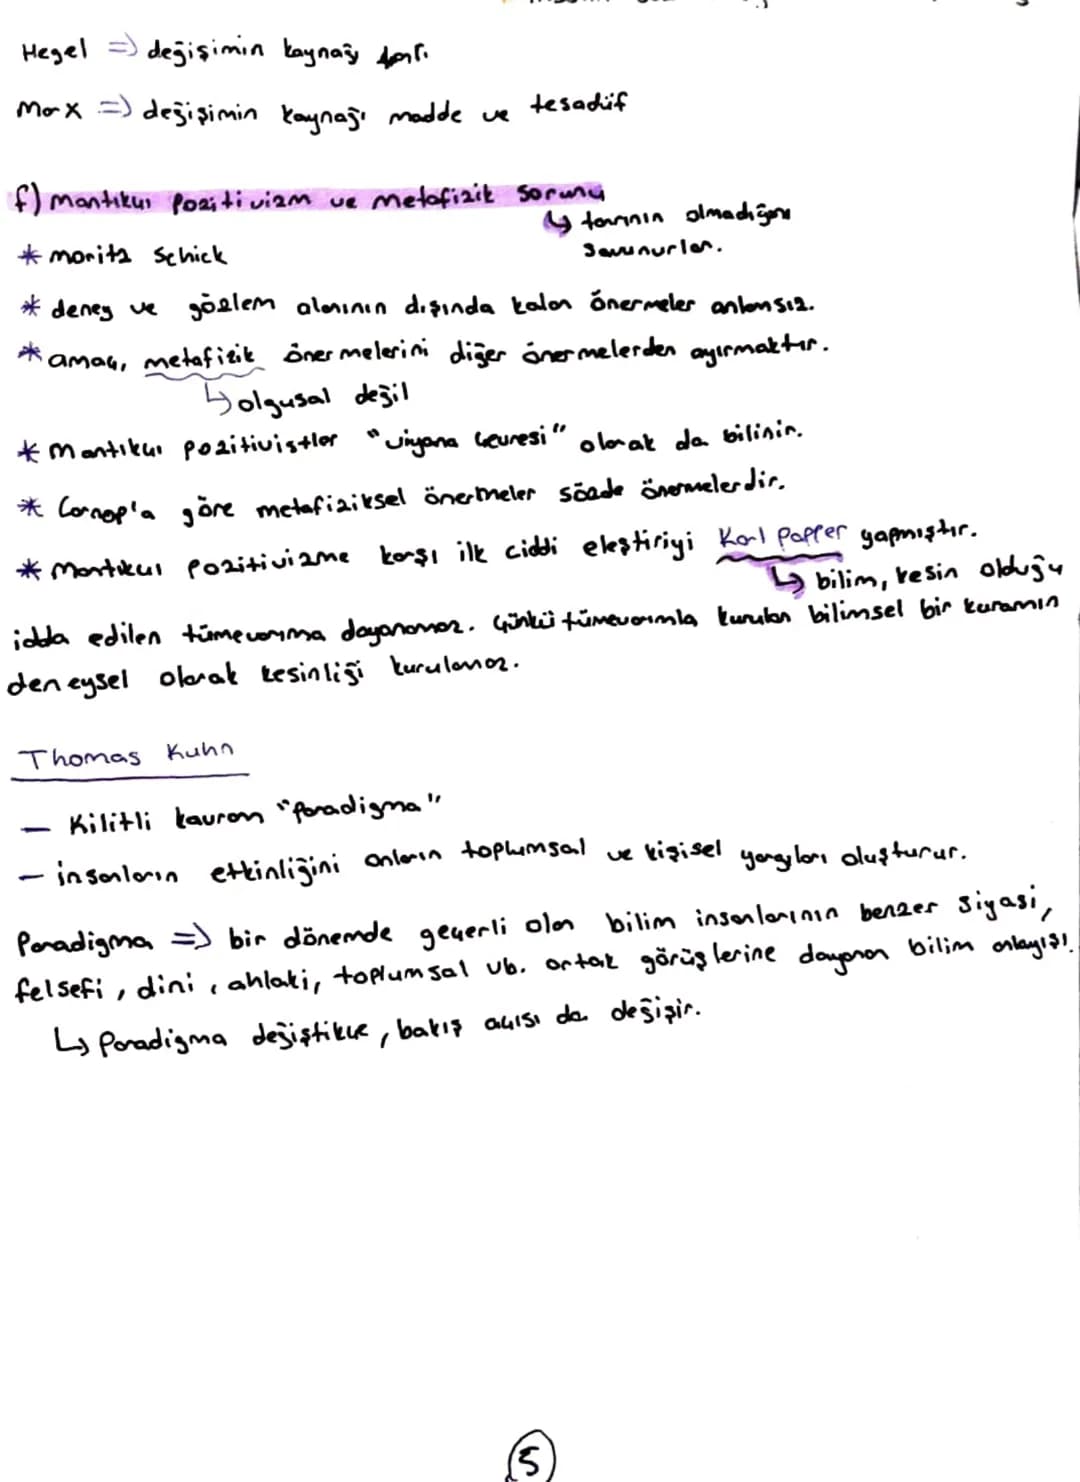 Hegel => değişimin kaynağı tanrı
Marx => değişimin kaynağı madde ve tesadüf
f) Mantıkçı Pozitivizm ve Metafizik Sorunu
↳ tanrının olmadığını
savunurlar.
* Moritz Schick
* deney ve gözlem alanının dışında kalan önermeler anlamsız.
* amaç, metafizik önermelerini diğer önermelerden ayırmaktır.
↳ olgusal değil
* Mantıkçı pozitivistler "Viyana Çevresi" olarak da bilinir.
* Carnap'a göre metafiziksel önermeler sözde önermelerdir.
* Mantıkçı Pozitivizme karşı ilk ciddi eleştiriyi Karl Popper yapmıştır.
↳ bilim, kesin olduğu
idda edilen tümevarıma dayanamaz. Çünkü tümevarımla kurulan bilimsel bir kuramın
deneysel olarak kesinliği kurulamaz.
Thomas Kuhn
— Kilitli kavram "Paradigma"
— insanların etkinliğini onların toplumsal ve kişisel yargıları oluşturur.
Paradigma => bir dönemde geçerli olan bilim insanlarının benzer siyasi,
felsefi, dini, ahlaki, toplumsal vb. ortak görüşlerine dayanan bilim anlayışı.
↳ Paradigma değiştikçe, bakış açısı da değişir.
5